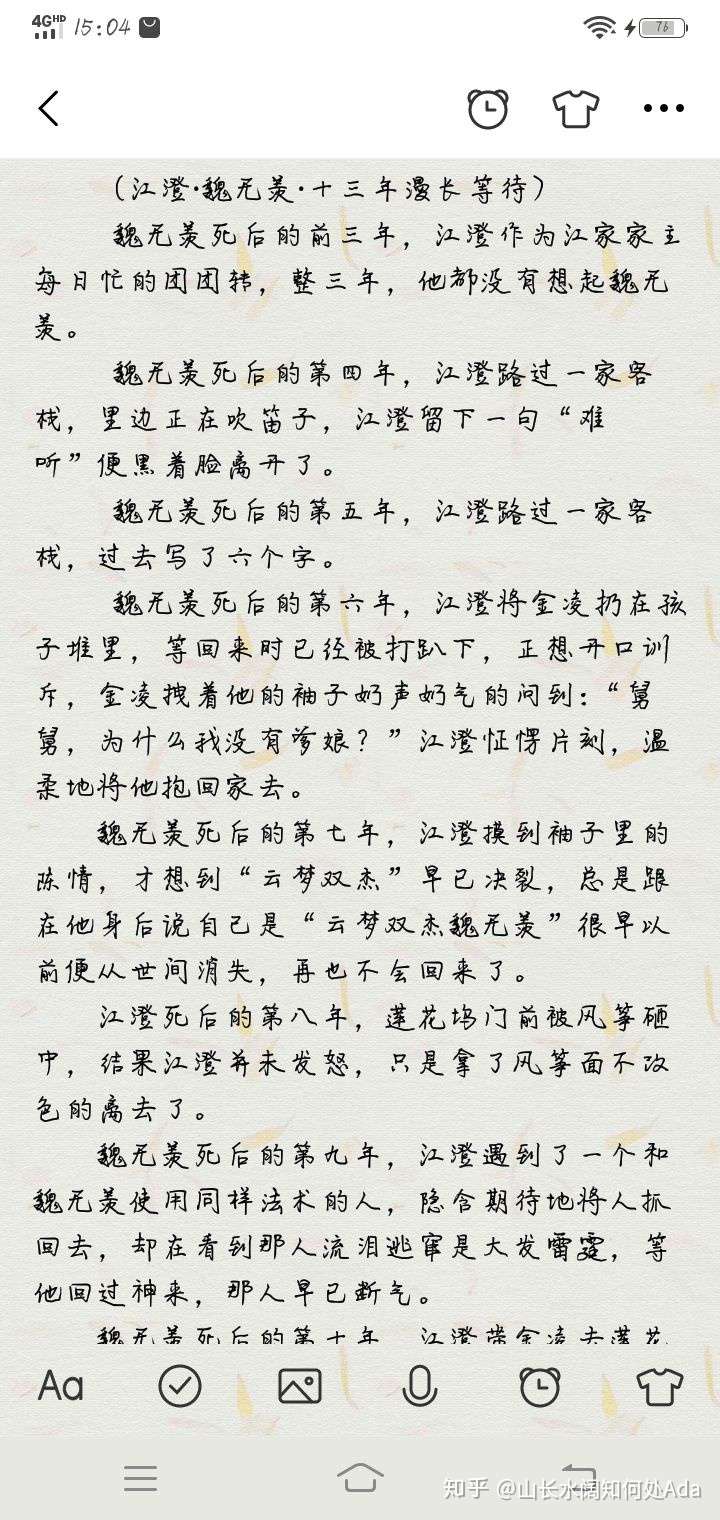 4G HD 15:04 76
(江澄·魏无羡·十三年漫长等待)
魏无羡死后的前三年，江澄作为江家家主
每日忙的团团转，整三年，他都没有想起魏无
羡。
魏无羡死后的第四年，江澄路过一家客
栈，里边正在吹笛子，江澄留下一句“难
听”便黑着脸离开了。
魏无羡死后的第五年，江澄路过一家客
栈，过去写了六个字。
魏无羡死后的第六年，江澄将金凌扔在孩
子堆里，等回来时已经被打趴下，正想开口训
斥，金凌拽着他的袖子奶声奶气的问到：“舅
舅，为什么我没有爹娘？”江澄怔愣片刻，温
柔地将他抱回家去。
魏无羡死后的第七年，江澄摸到袖子里的
陈情，才想到“云梦双杰”早已决裂，总是跟
在他身后说自己是“云梦双杰魏无羡”很早以
前便从世间消失，再也不会回来了。
江澄死后的第八年，莲花坞门前被风筝砸
中，结果江澄并未发怒，只是拿了风筝面不改
色的离去了。
魏无羡死后的第九年，江澄遇到了一个和
魏无羡使用同样法术的人，隐含期待地将人抓
回去，却在看到那人流泪逃窜是大发雷霆，等
他回过神来，那人早已断气。
魏无羡死后的第十年，江澄带金凌去莲花
Aa
知乎 @山长水阔知何处Ada